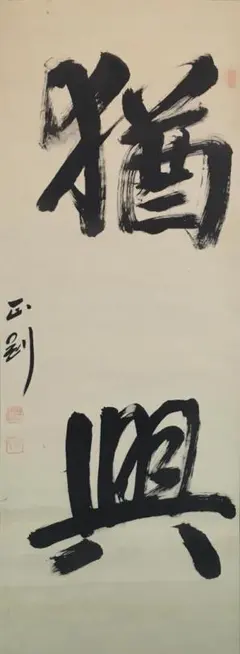 猶興
正剛